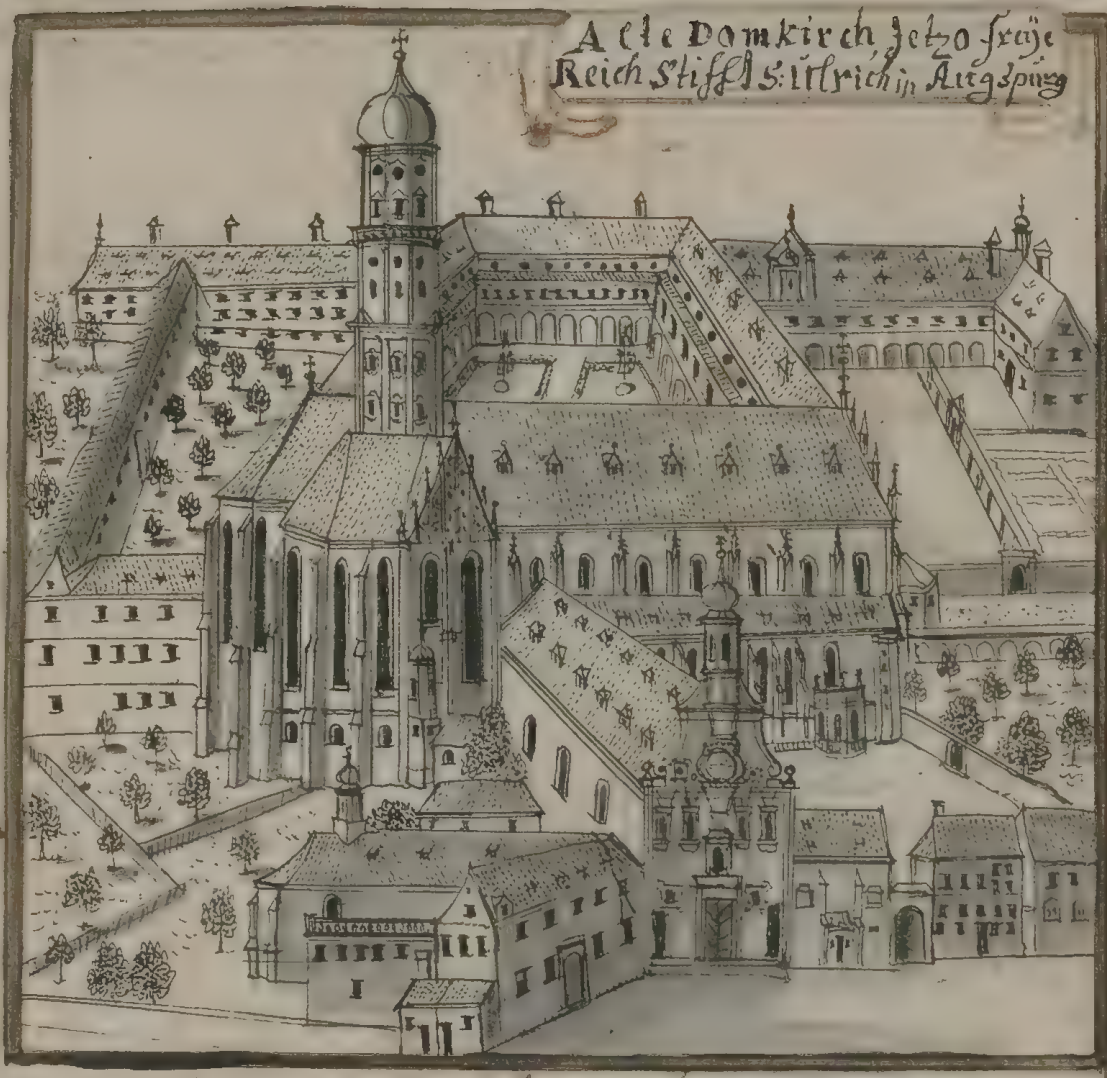 Alte Domkirch, Jetzo freÿe
Reich Stifft S: Ulrich in Augspurg